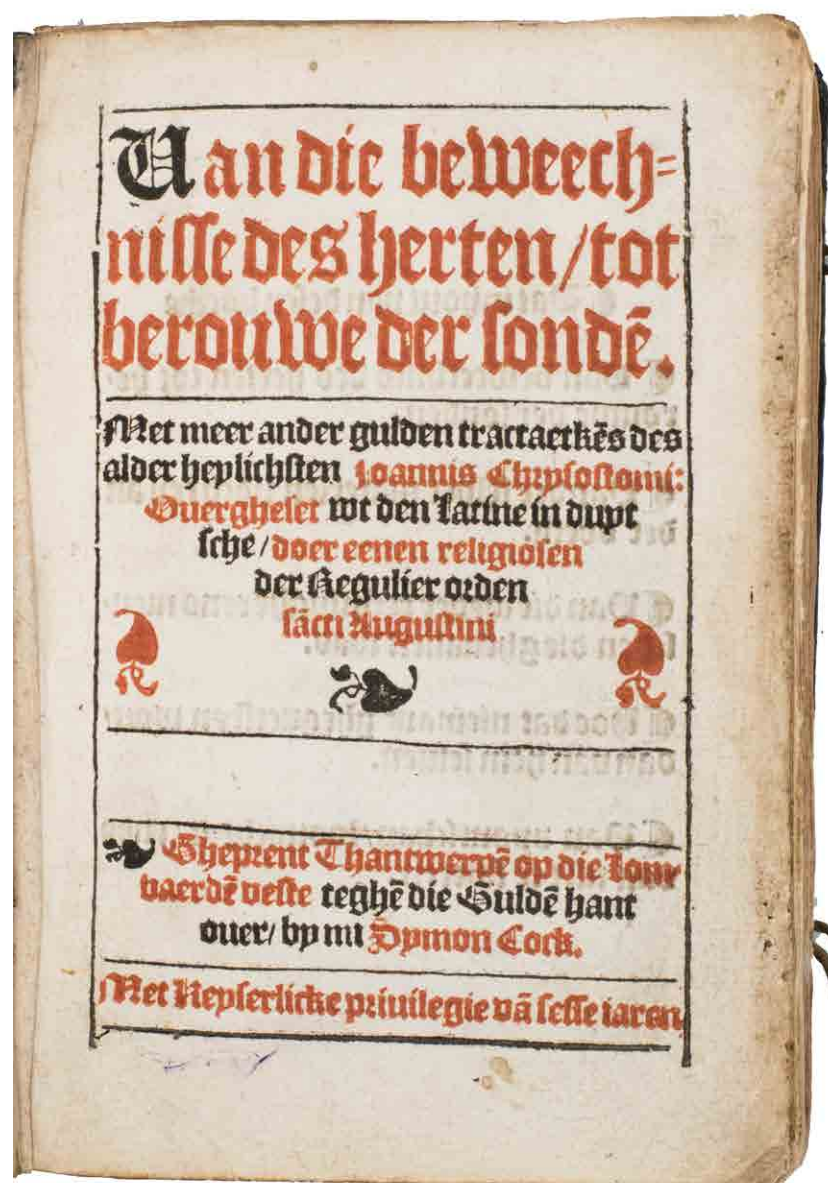 Van die beweech-
nisse des herten/tot
berouwe der sondē.
Met meer ander gulden tractaetkēs des
alder heylichsten Joannis Chrysostomi:
Ouergheset wt den Latine in duyt
sche/doer eenen religiosen
der Regulier orden
sācti Augustini
Gheprent Thantwerpē op die Lom
vaerdē veste teghē die Guldē hant
ouer/ by mi Symon Cock.
Met Keyserlicke priuilegie vā sesse iaren.